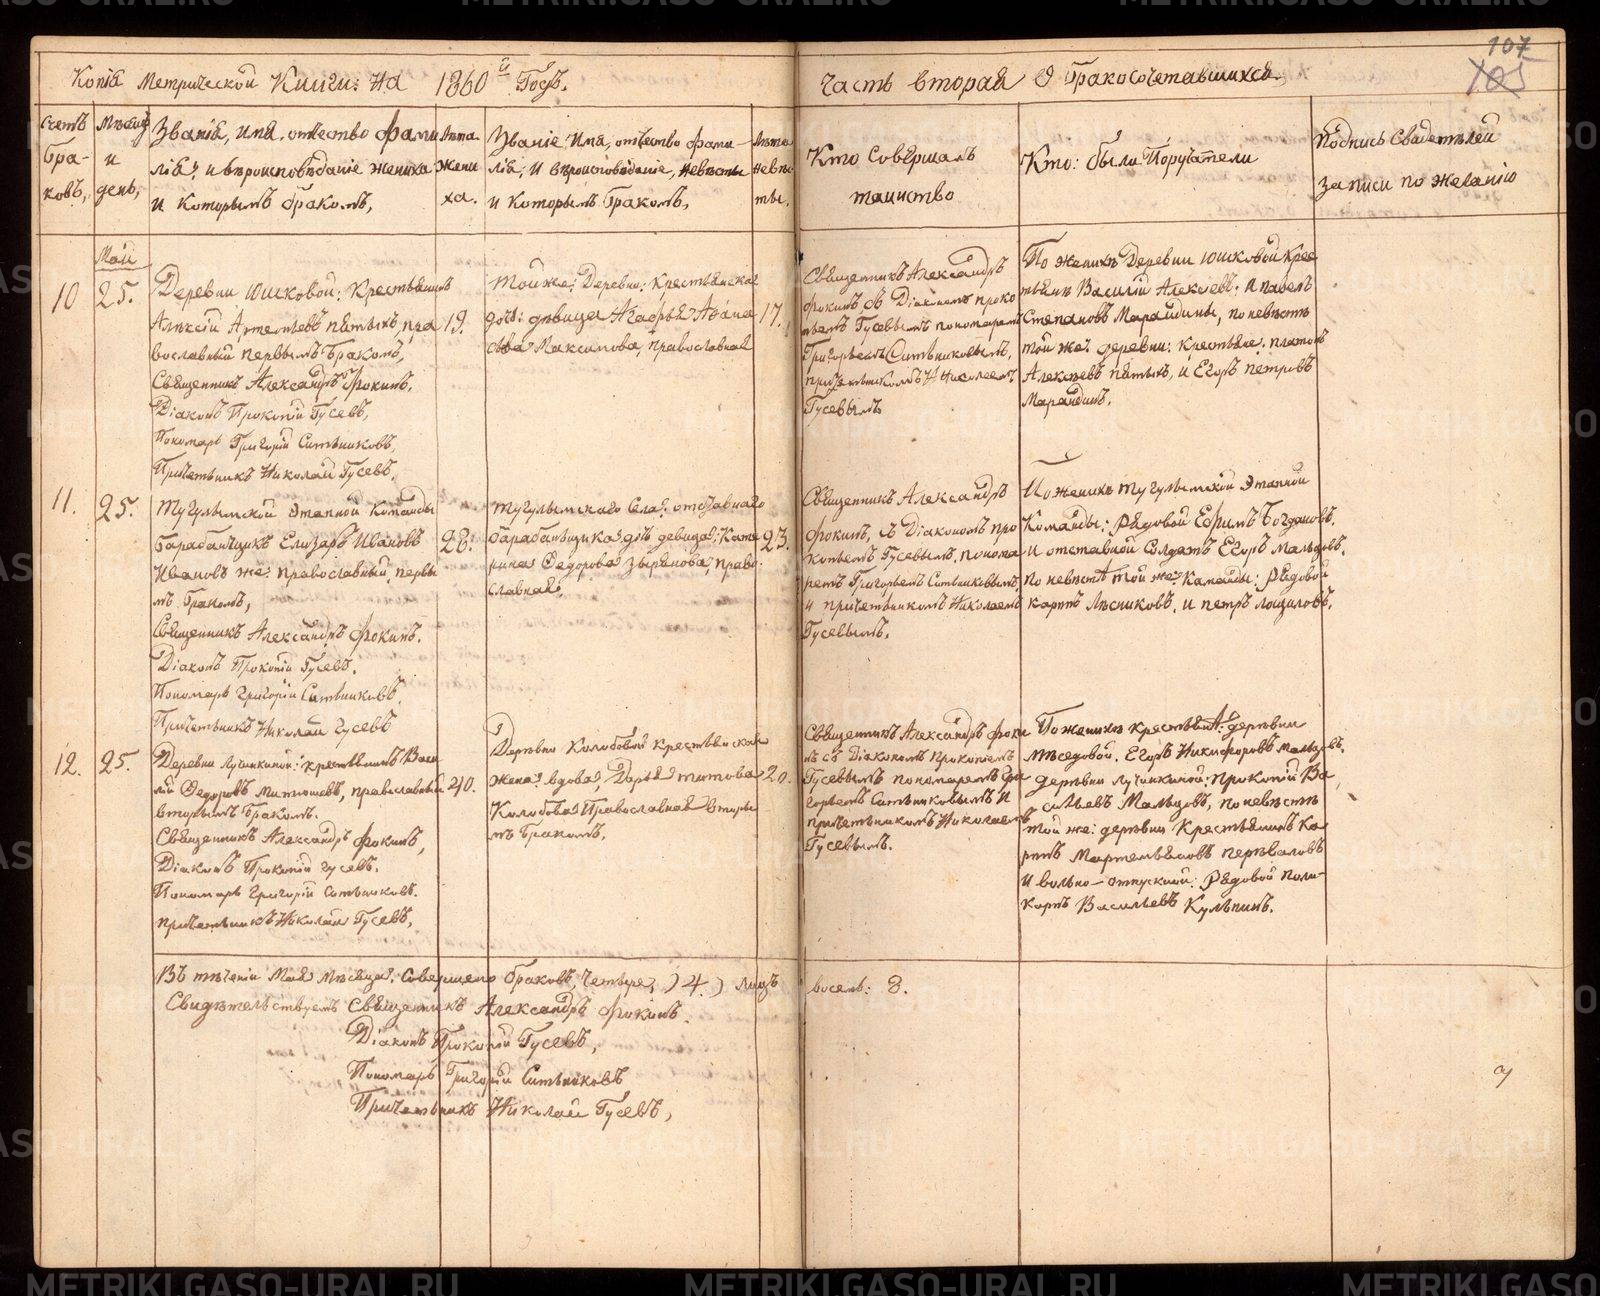 107
105
Копія Метрической Книги: На 1860й Годъ.
Часть вторая О бракосочетавшихся
Счетъ бра-
ковъ,
Мѣсяцъ
и
день,
Званіе, Имя, отчество фами
лія, и вѣроисповѣданіе жениха
и которымъ бракомъ,
Лѣта
Жени
ха.
Званіе Имя, отчество фами
лія, и вѣроисповѣданіе, невѣсты
и которымъ бракомъ,
Лѣта
невѣс
ты.
Кто Совершалъ
таинство
Кто: были Поручатели
Подпись Свидетѣлей
записи по желанію
Май
10
25.
Деревни Юшковой: Крестьянинъ
Алѣксій Артемьевъ пятыхъ, пра
вославный первымъ бракомъ,
Священникъ Александръ Фокинъ.
Діаконъ Прокопій Гусевъ,
Пономарь Григорій Ситьниковъ,
Причетьникъ Николай Гусевъ,
19.
Той же: Деревни: Крестьянская
дочь: девица Агафья Афана
сьева Максимова, православная
17.
Священникъ Александръ
Фокинъ съ Діакономъ проко
пьемъ Гусевымъ пономаремъ
Григорьемъ Ситьниковымъ,
причетьникомъ Николаемъ
Гусевымъ
По женихѣ Деревни Юшковой Крес
тьяне Василій Алексѣевъ: и павелъ
Степановъ Марандины, по невѣсте
той же: деревни: крестьяне: платонъ
Алексѣевъ пятыхъ, и Егоръ петровъ
Марандинъ.
11.
25.
Тугулымской Этапной Команды
барабанщикъ Елизаръ Ивановъ
Ивановъ же: православный, первы
мъ бракомъ,
Священникъ Александръ Фокинъ.
Діаконъ Прокопій Гусевъ.
Пономарь Григорій Ситьниковъ
Причетьникъ Николай Гусевъ
28.
Тугулымскаго Села: отставнаго
барабанщика дочь девица: Кате
рина Федорова Зырянова, право
славная.
23.
Священникъ Александръ
Фокинъ, съ Діакономъ про
копьемъ Гусевымъ, понома
ремъ Григорьемъ Ситьниковымъ,
и причетьникомъ Николаемъ
Гусевымъ.
По женихѣ тугулымской Этапной
Команды: Рядовой Ефимъ Богдановъ.
и отставной Солдатъ Егоръ Мальцовъ.
по невѣсте той же: Команды: Рядовой
карпъ Лѣсниковъ. и петръ Лощиловъ.
12.
25.
Деревни Лучинкиной: крестьянинъ Васи
лій Федоровъ Митюшевъ, православный
вторымъ бракомъ.
Священникъ Александръ Фокинъ,
Діаконъ Прокопій Гусевъ.
Пономарь Григорій Ситьниковъ.
причетьникъ Николай Гусевъ,
40.
Деревни Колобовой Крестьянская
жена: вдова, Дарья Титова
Колобова Православная вторы
мъ бракомъ.
20.
Священникъ Александръ Фоки
нъ съ Діакономъ Прокопьемъ
Гусевымъ пономаремъ Гри
горьемъ Ситьниковымъ и
причетьникомъ Николаемъ
Гусевымъ.
По женихѣ крестьяне: деревни
Егоръ Никифоровъ Мальцовъ.
деревни Лучинкиной: Прокопій Ва
сильевъ Мальцовъ, по невѣсте
той же: деревни Крестьянинъ Ка
рпъ Мартемьяновъ перваловъ
и вольно-отпускной: Рядовой Поли-
карпъ Васильевъ Кульпинъ.
Въ тѣченіи Мая Мѣсяца: Совершено браковъ, Четыре, ) 4. ) лицъ восемь: 8.
Свидѣтельствуемъ Священникъ Александръ Фокинъ.
Діаконъ Прокопій Гусевъ,
Пономарь Григорій Ситьниковъ
Причетьникъ Николай Гусевъ,
METRIKI.GASO-URAL.RU